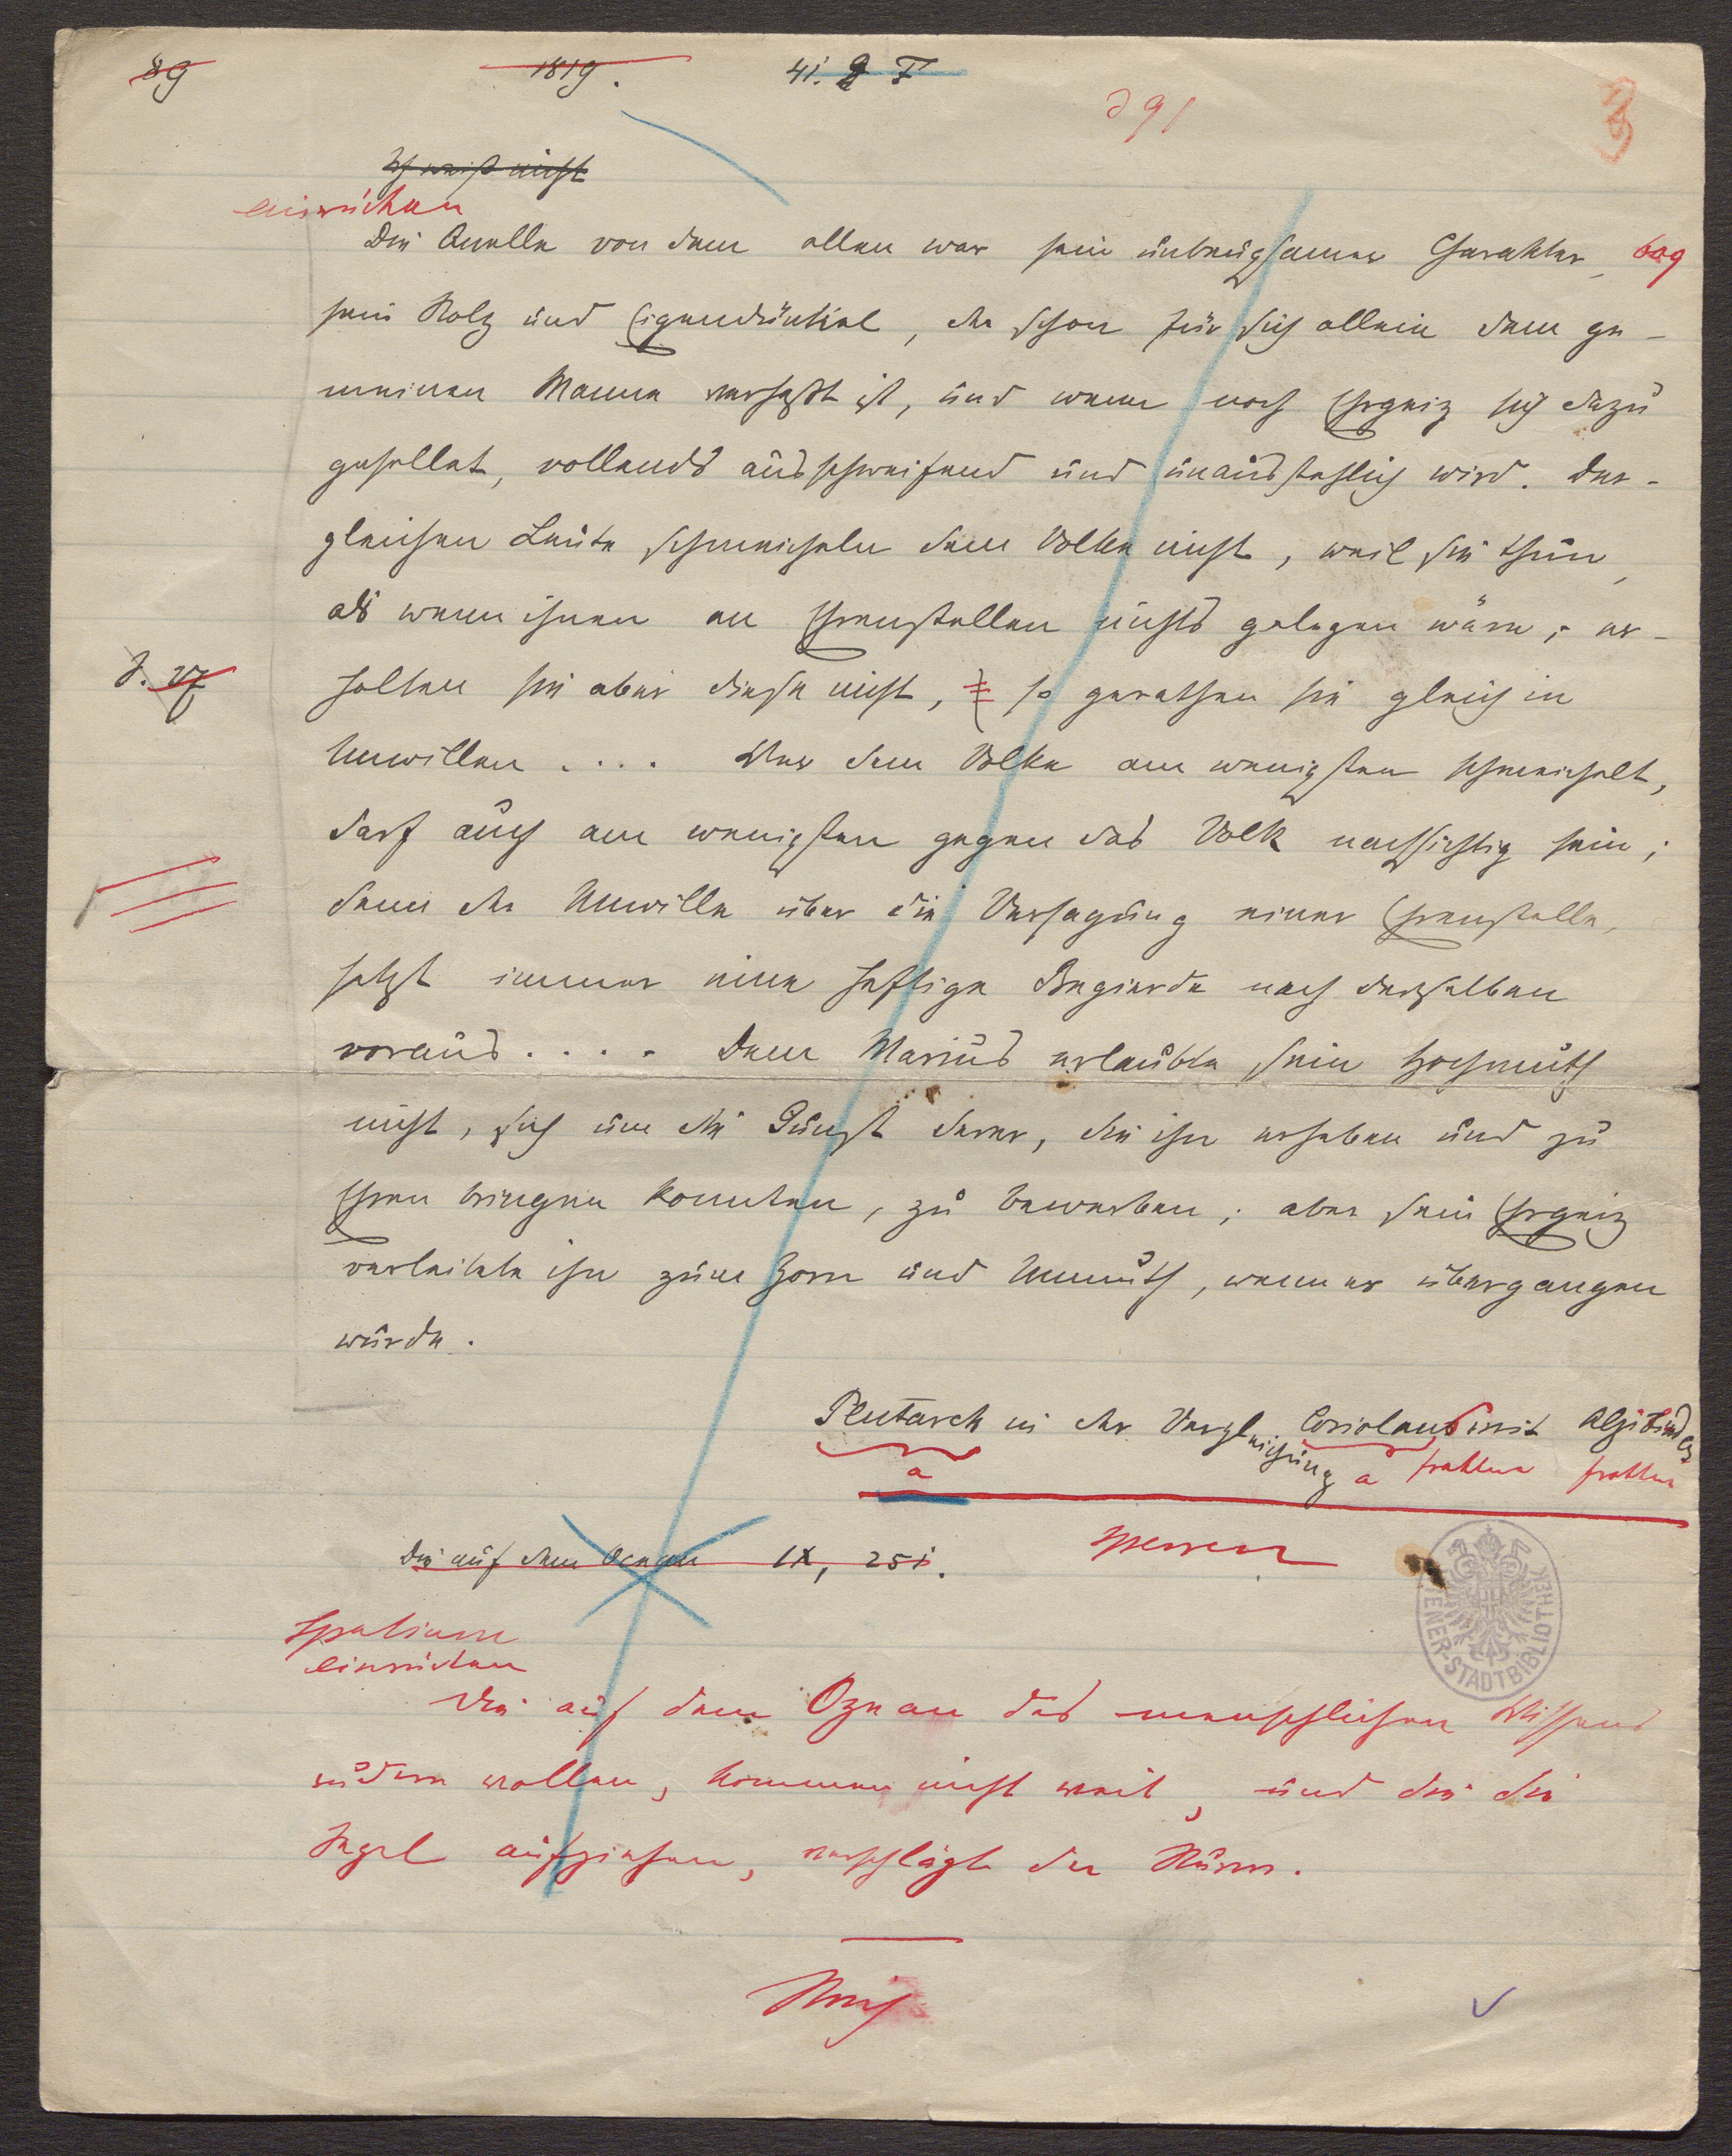 89
1819.
41. 2 T
391
3
Ich weiß nicht
einrücken
Die Quelle von dem allen war sein unbeugsamer Charakter,
609
sein Stolz und Eigendünkel, der schon für sich allein dem ge-
meinen Manne verhaßt ist, und wenn noch Ehrgeiz sich dazu
gesellet, vollends ausschweifend und unausstehlich wird. Der-
gleichen Leute schmeicheln dem Volke nicht, weil sie thun,
als wenn ihnen an Ehrenstellen nichts gelegen wäre; er-
J. 27
halten sie aber diese nicht, so gerathen sie gleich in
Unwillen .... Wer dem Volke am wenigsten schmeichelt,
darf auch am wenigsten gegen das Volk nachsichtig sein;
denn der Unwille über die Versagung einer Ehrenstelle,
setzt immer eine heftige Begierde nach derselben
voraus .... Dem Marius erlaubte sein Hochmuth
nicht, sich um die Gunst derer, die ihn erheben und zu
Ehren bringen konnten, zu bewerben; aber sein Ehrgeiz
verleitete ihn zum Zorn und Unmuth, wenn er übergangen
wurde.
Plutarch in der Vergleichung Coriolans mit Alzibiades
a a fraktur fraktur
sperren
Die auf dem Ocean IX, 251.
WIENER-STADTBIBLIOTHEK
Spatium
einrücken
Die auf dem Ozean des menschlichen Wissens
rudern wollen, kommen nicht weit, und die die
Segel aufziehen, verschlägt der Sturm.
Strich